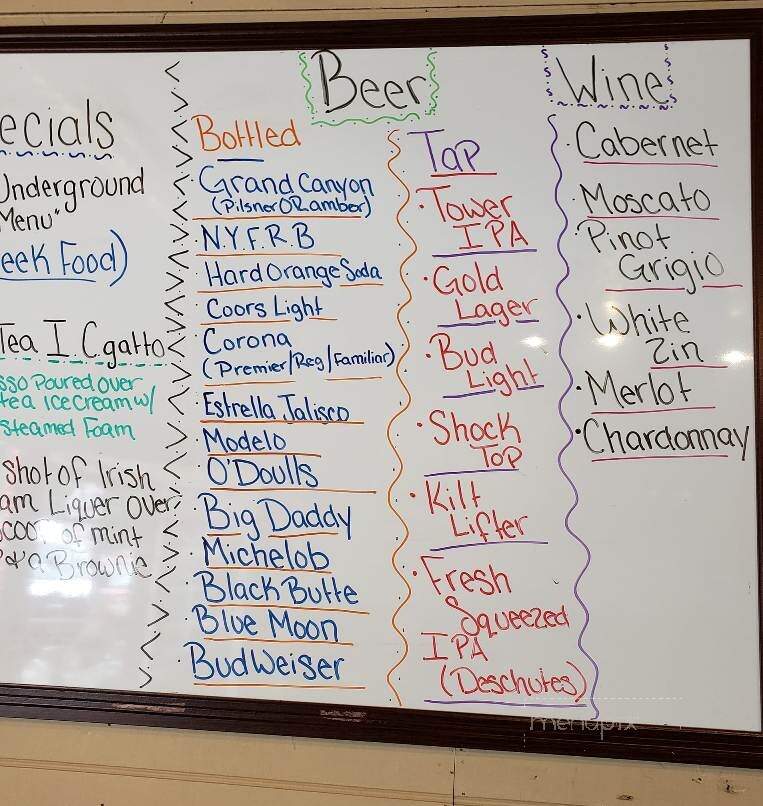 ecials
Underground
Menu"
eek Food)
Tea I C.gatto
sso Poured over
tea Ice Cream w/
Steamed Foam
Shot of Irish
am Liquer Over
coop of mint
& a Brownie
Beer
Bottled
Grand Canyon
(Pilsner OR amber)
N.Y.F.R.B
Hard Orange Soda
Coors Light
Corona
(Premier/Reg/Familiar)
Estrella Jalisco
Modelo
O'Doulls
Big Daddy
Michelob
Black Butte
Blue Moon
BudWeiser
Tap
Tower
IPA
Gold
Lager
Bud
Light
Shock
Top
Kilt
Lifter
Fresh
Squeezed
IPA
(Deschutes)
Wine
Cabernet
Moscato
Pinot
Grigio
White
Zin
Merlot
Chardonnay
menupix